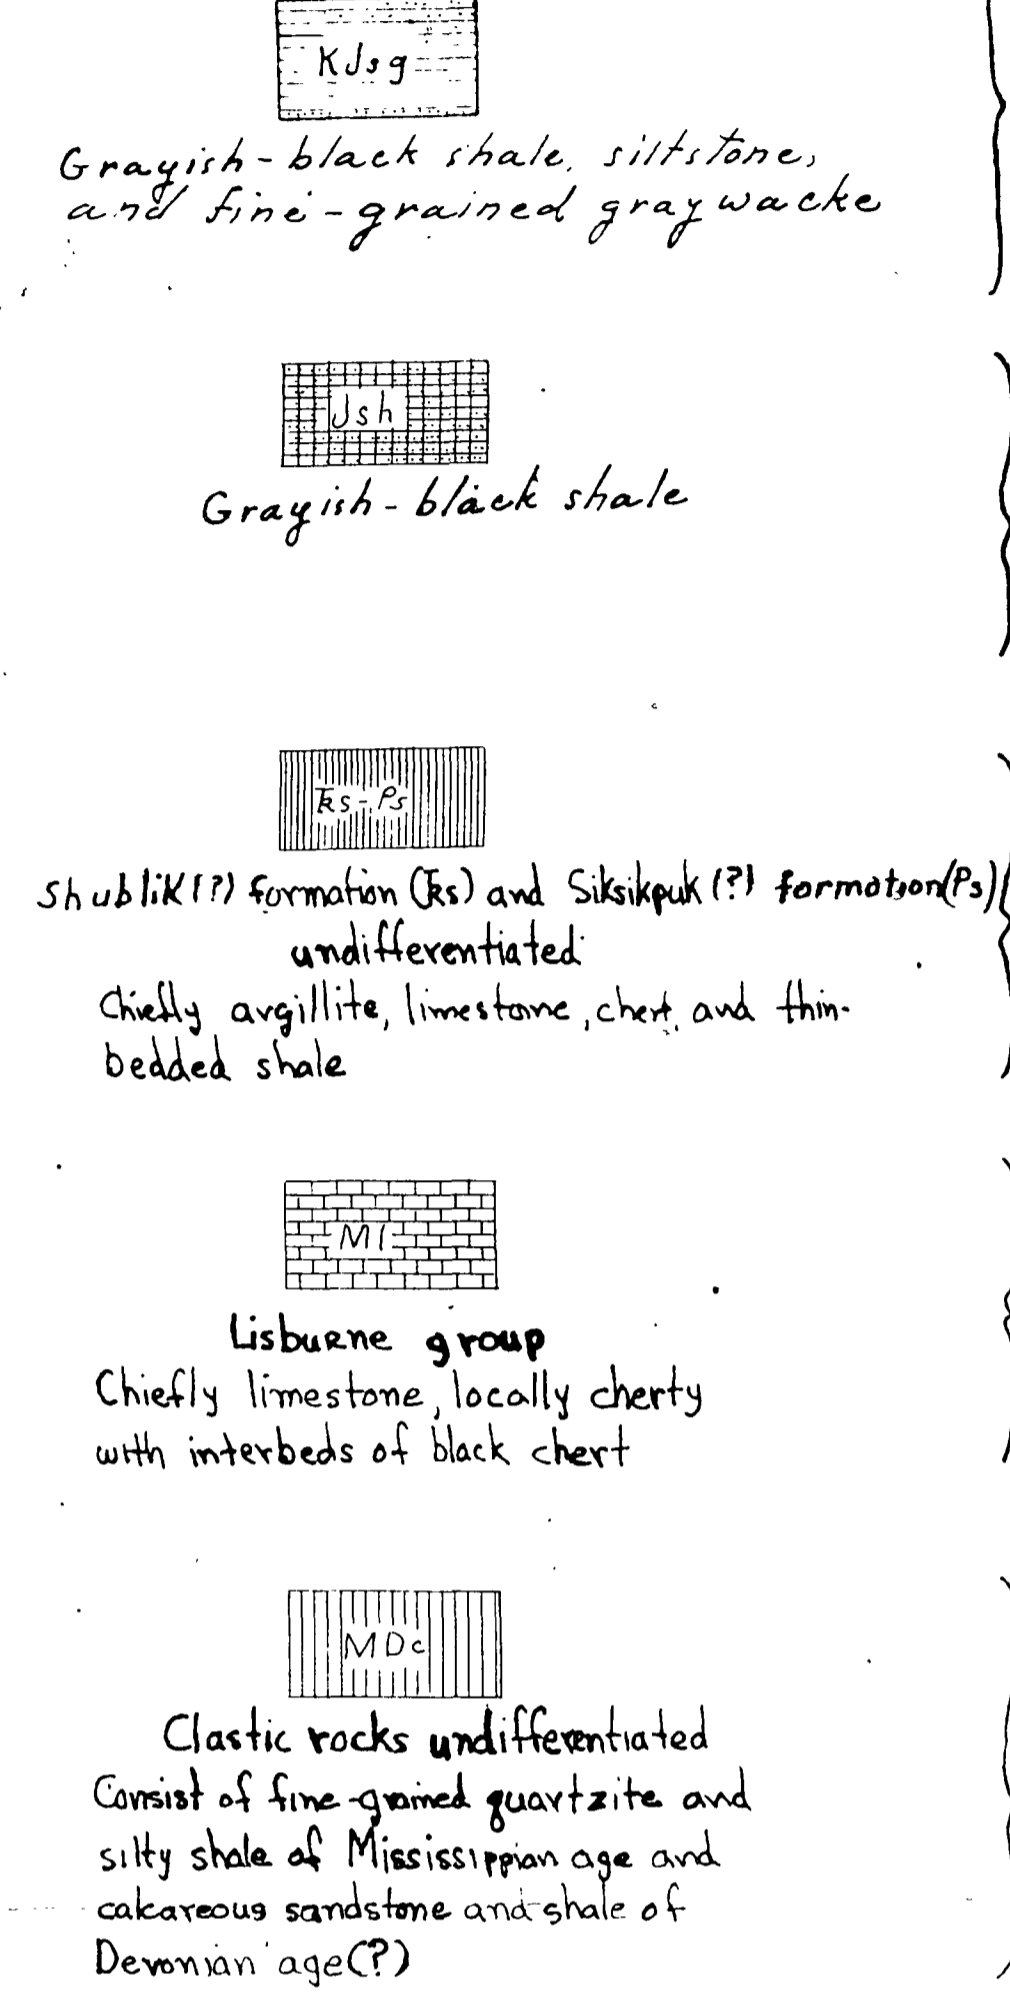 KJsg
Grayish-black shale, siltstone,
and fine-grained graywacke
Jsh
Grayish-black shale
Ŧks-Ps
Shublik(?) formation (Ŧks) and Siksikpuk(?) formation(Ps)
undifferentiated
Chiefly argillite, limestone, chert, and thin-
bedded shale
Ml
Lisburne group
Chiefly limestone, locally cherty
with interbeds of black chert
MDc
Clastic rocks undifferentiated
Consist of fine-grained quartzite and
silty shale of Mississippian age and
calcareous sandstone and shale of
Devonian age(?)